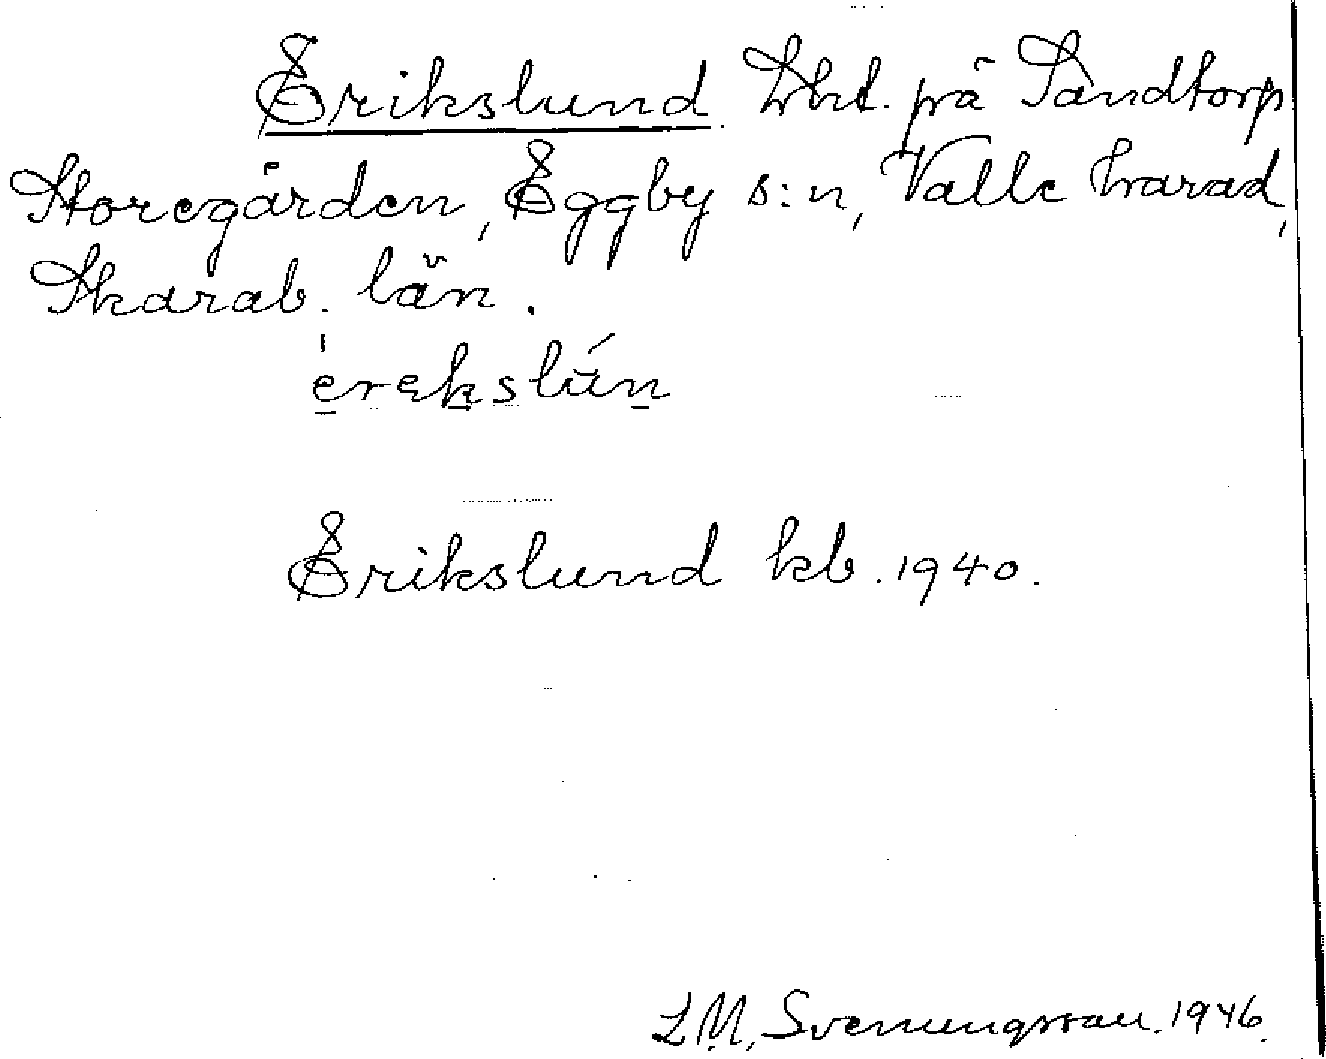 Erikslund. Lht. på Sandtorp
Storegården, Eggby s:n, Valle härad,
Skarab. län.
erekslún
Erikslund kb. 1940.
L.M. Svenungsson. 1946.